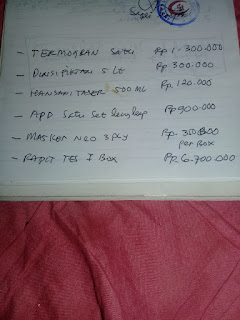 - TERMOGRAN SATU Rp 1-300.000
- DINSIFIKTAN 5 Lt Rp 300.000
- HANSANITAIZER 500 ML Rp. 120.000
- APD SATU SET lengkap Rp 900.000
- MASKER NEO 3 PLY Rp-350.000
per BOX
- RAPIT TES I Box Rp. 6-700.000